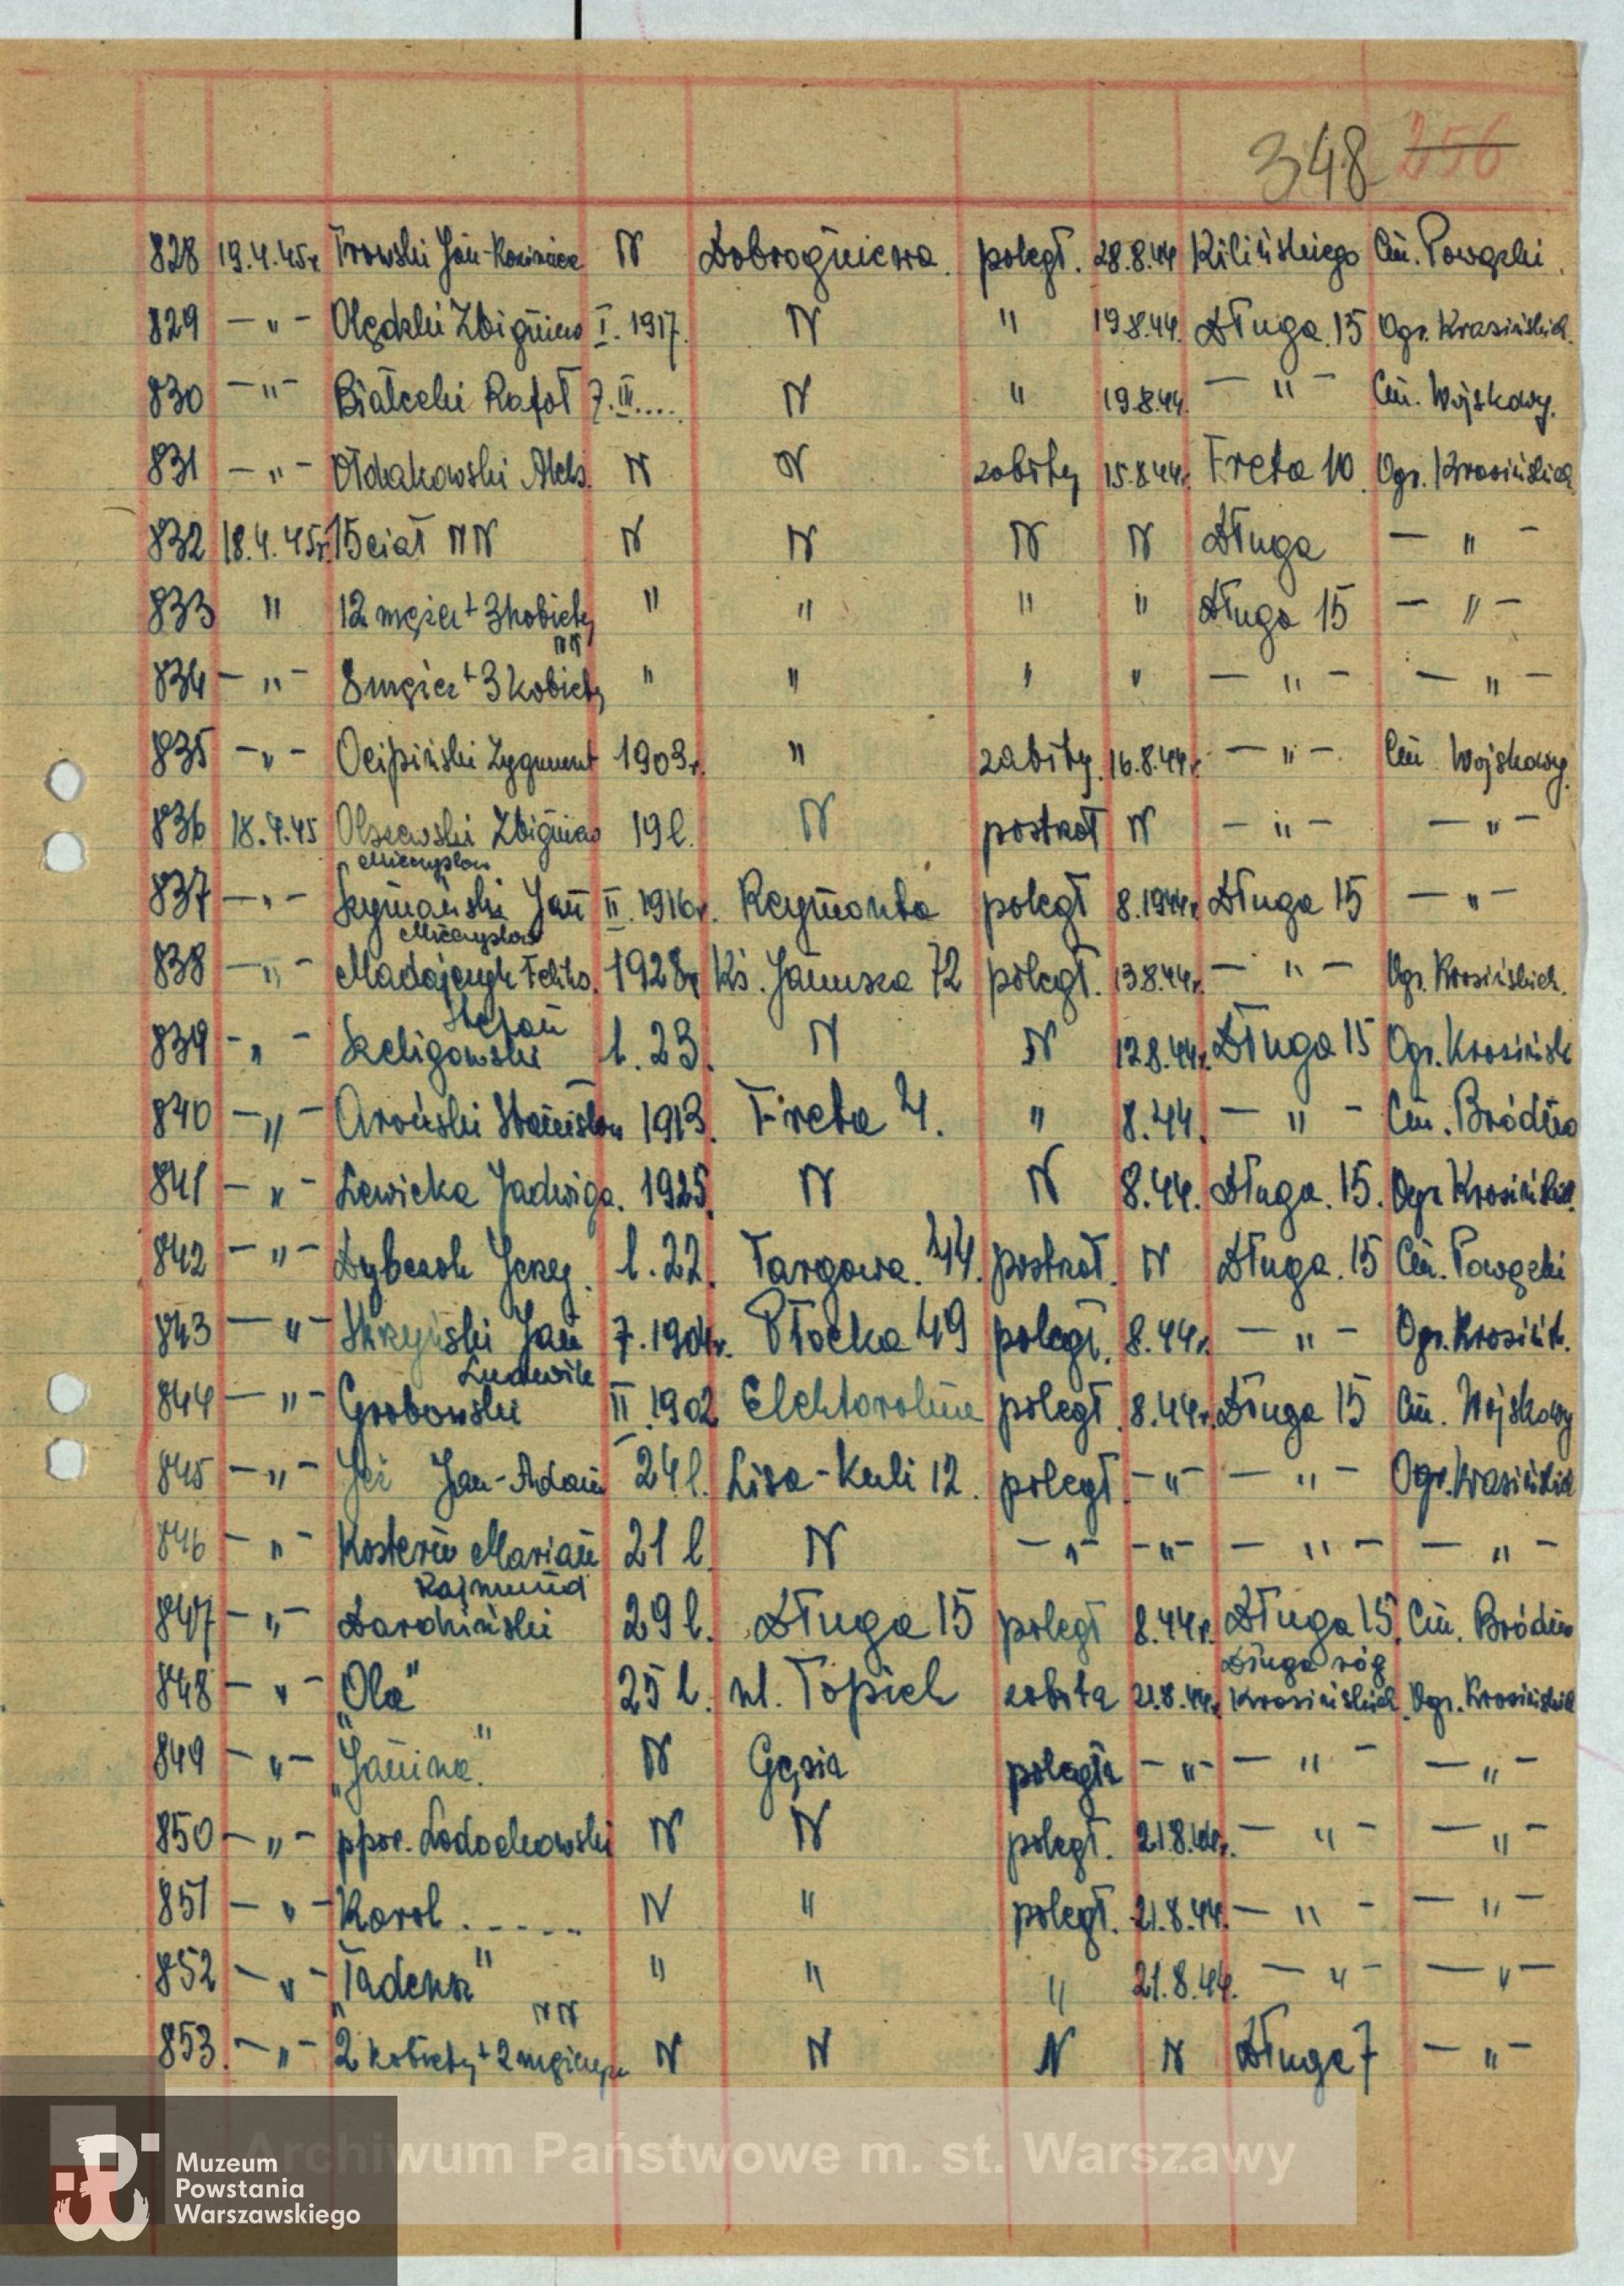 348 256
828 19.4.45r. Trowski Jan-Kazimierz N Dobrogniewa poległ. 28.8.44 Kilińskiego Cm. Powązki.
829 — " — Olędzki Zbigniew I. 1917. N " 19.8.44. Długa 15 Ogr. Krasińskich.
830 — " — Białecki Rafał 7.III.... N " 19.8.44. — " — Cm. Wojskowy.
831 — " — Ołdakowski Aleks. N N zabity 15.8.44r. Freta 10. Ogr. Krasińskich
832 18.4.45r. 15 ciał NN N N N N Długa — " —
833 " 12 mężcz + 3 kobiety NN " " " " Długa 15 — " —
834 — " — 8 mężcz + 3 kobiety " " " " — " — — " —
835 — " — Ocipiński Zygmunt 1903r. " zabity. 16.8.44r. — " — Cm. Wojskowy.
836 18.4.45 Olszewski Zbigniew 19 l. N postrzał N — " — — " —
Mieczysław
837 — " — Szymański Jan II. 1916r. Reymonta poległ 8.1944r. Długa 15 — " —
Mieczysław
838 — " — Madajczyk Feliks. 1928r Ks. Janusza 72 poległ. 13.8.44r. — " — Ogr. Krasińskich.
Stefan
839 — " — Szeligowski l. 23. N N 12.8.44r. Długa 15 Ogr. Krasińsk
840 — " — Aroński Stanisław 1913. Freta 4. " 8.44. — " — Cm. Bródno
841 — " — Lewicka Jadwiga. 1925. N N 8.44. Długa. 15. Ogr Krasińskich.
842 — " — Dybczak Jerzy. l. 22. Targowa. 44. postrzał. N Długa. 15 Cm. Powązki
843 — " — Skrzyński Jan 7. 1904r. Płocka 49 poległ. 8.44r. — " — Ogr. Krasińsk.
Ludwik
844 — " — Grabowski II. 1902 Elektoralna poległ. 8.44r. Długa 15 Cm. Wojskowy
845 — " — Jan-Adam 24 l. Lisa-Kuli 12. poległ. — " — — " — Ogr. Krasińskich
846 — " — Kostera Marian 21 l. N — " — — " — — " — — " —
Rajmund
847 — " — Darchiński 29 l. Długa 15 poległ 8.44r. Długa 15. Cm. Bródno
848 — " — "Ola" 25 l. ul. Topiel zabita 21.8.44r. Długa róg Krasińskich. Ogr. Krasińskich
849 — " — "Janina." N Gęsia poległa — " — — " — — " —
850 — " — ppor. Ladochowski N N poległ. 21.8.44r. — " — — " —
851 — " — Karol . - - - - N " poległ. 21.8.44. — " — — " —
852 — " — "Tadeusz" " " " 21.8.44. — " — — " —
853. — " — 2 kobiety + 2 mężczyzn NN N N N N Długa 7 — " —
Archiwum Państwowe m. st. Warszawy
Muzeum
Powstania
Warszawskiego